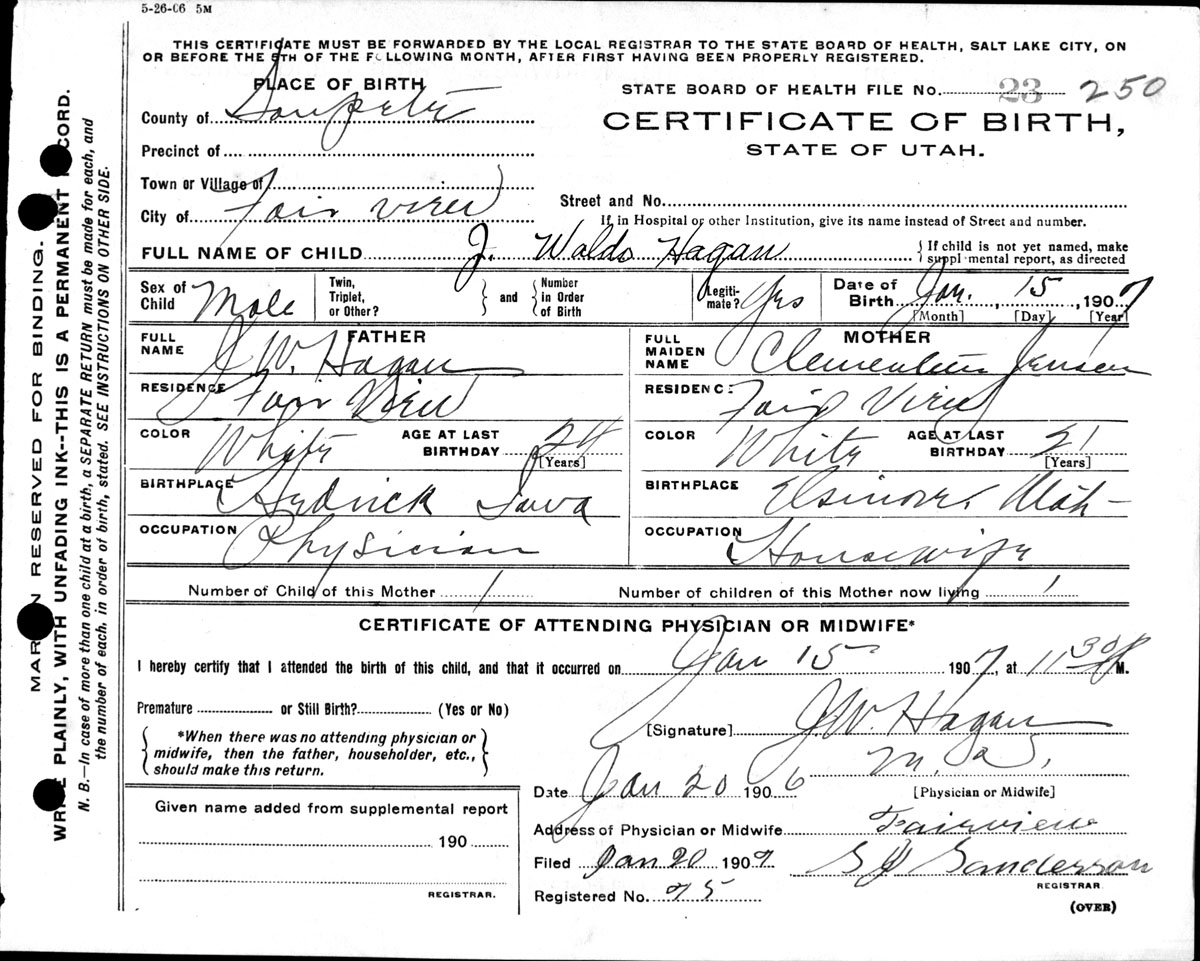 5-26-06 5M
THIS CERTIFICATE MUST BE FORWARDED BY THE LOCAL REGISTRAR TO THE STATE BOARD OF HEALTH, SALT LAKE CITY, ON
OR BEFORE THE 5TH OF THE FOLLOWING MONTH, AFTER FIRST HAVING BEEN PROPERLY REGISTERED.
PLACE OF BIRTH
STATE BOARD OF HEALTH FILE No. 23 250
County of Sanpete
CERTIFICATE OF BIRTH,
STATE OF UTAH.
Precinct of
Town or Village of
Street and No.
City of Fair View
If, in Hospital or other Institution, give its name instead of Street and number.
FULL NAME OF CHILD J. Waldo Hagan { If child is not yet named, make supplemental report, as directed
Sex of Child Male Twin, Triplet, or Other? } and { Number in Order of Birth Legiti-mate? Yes Date of Birth Jan. 15, 1907
[Month] [Day] [Year]
FATHER MOTHER
FULL NAME J W. Hagan FULL MAIDEN NAME Clementine Jensen
RESIDENCE Fair View RESIDENCE Fair View
COLOR White AGE AT LAST BIRTHDAY 24 [Years] COLOR White AGE AT LAST BIRTHDAY 21 [Years]
BIRTHPLACE Hedrick Iowa BIRTHPLACE Elsinore, Utah
OCCUPATION Physician OCCUPATION Housewife
Number of Child of this Mother 1 Number of children of this Mother now living 1
CERTIFICATE OF ATTENDING PHYSICIAN OR MIDWIFE*
I hereby certify that I attended the birth of this child, and that it occurred on Jan 15 1907, at 11 30 P M.
Premature or Still Birth? (Yes or No)
[Signature] J.W. Hagan
M. D.
*When there was no attending physician or
midwife, then the father, householder, etc.,
should make this return.
Date Jan 20 1906 [Physician or Midwife]
Given name added from supplemental report
190
REGISTRAR.
Address of Physician or Midwife Fairview
Filed Jan 20 1907 Sanderson
REGISTRAR
Registered No. 75
(OVER)
MARGIN RESERVED FOR BINDING.
WRITE PLAINLY, WITH UNFADING INK--THIS IS A PERMANENT RECORD.
N. B.—In case of more than one child at a birth, a SEPARATE RETURN must be made for each, and
the number of each, in order of birth, stated. SEE INSTRUCTIONS ON OTHER SIDE.